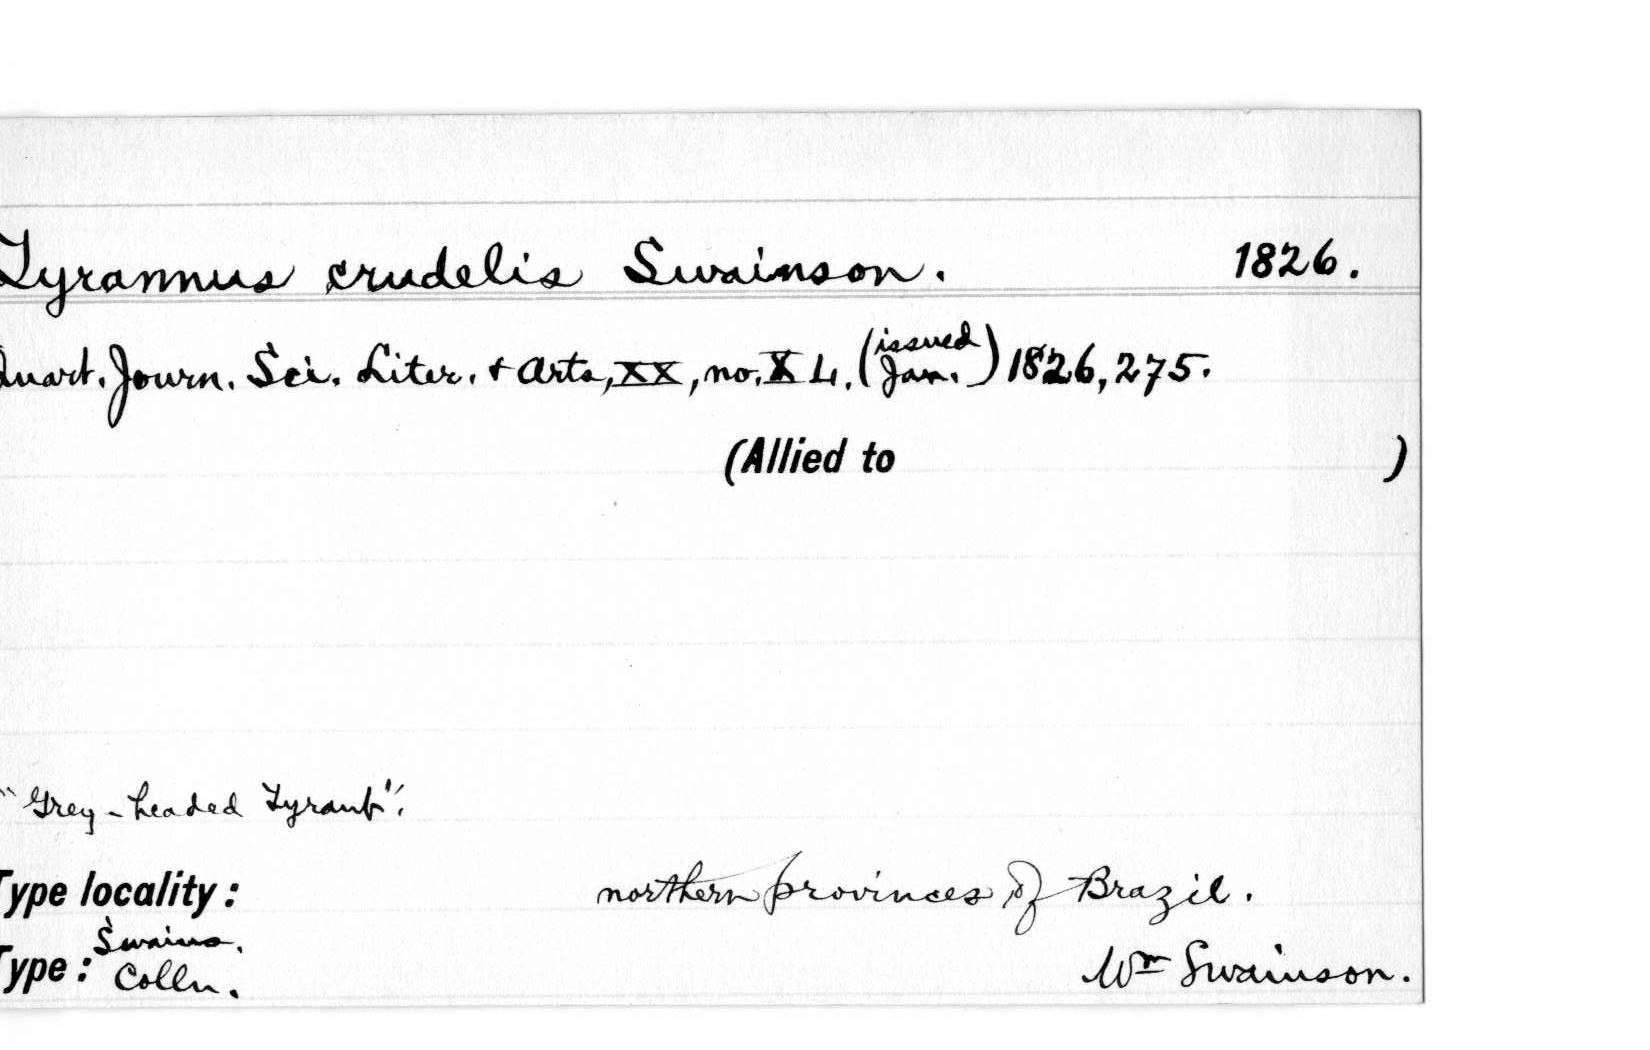 Tyrannus crudelis Swainson. 1826.
Quart. Journ. Sci. Liter. & Arts, XX, no. XL. (issued Jan.) 1826, 275.
(Allied to )
"Grey-headed Tyrant".
Type locality: northern provinces of Brazil.
Type: Swains. Colln. Wm Swainson.